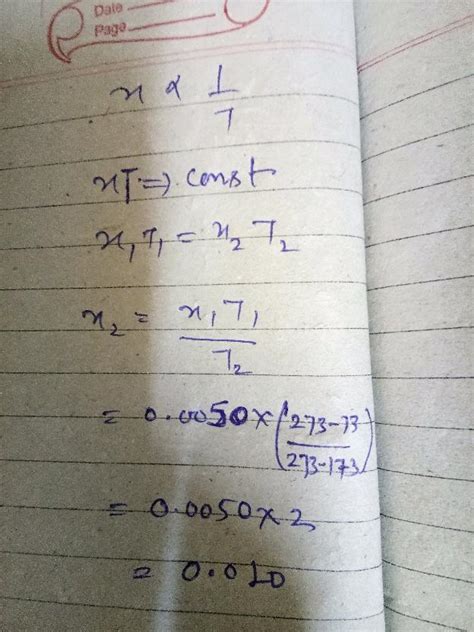 Date
Page
x ∝ 1/T
xT ⇒ const
x₁T₁ = x₂T₂
x₂ = x₁T₁/T₂
= 0.0050 × (273-73/273-173)
= 0.0050 × 2
= 0.010